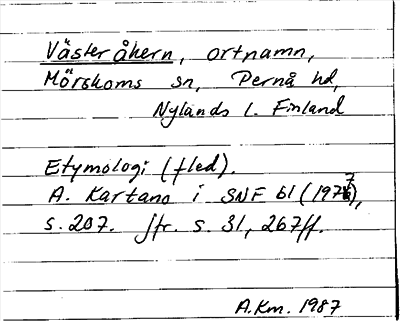 Västeråkern, ortnamn,
Mörskoms sn, Pernå hd,
Nylands l. Finland
Etymologi (fled).
A. Kartano i SNF 61 (1977),
s. 207. Jfr. s. 31, 267ff.
A.Km. 1987